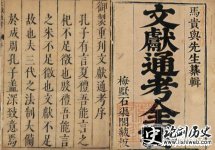 馬貴與先生纂輯
文獻通考全
梅墅石渠閣藏
御製重刊文獻通考序
孔子有言夏禮吾能言
杞不足徵也殷禮吾能言
之宋不足徵也文獻不足
故也夫三代之法制大備
於成周孔子深致意焉
历史